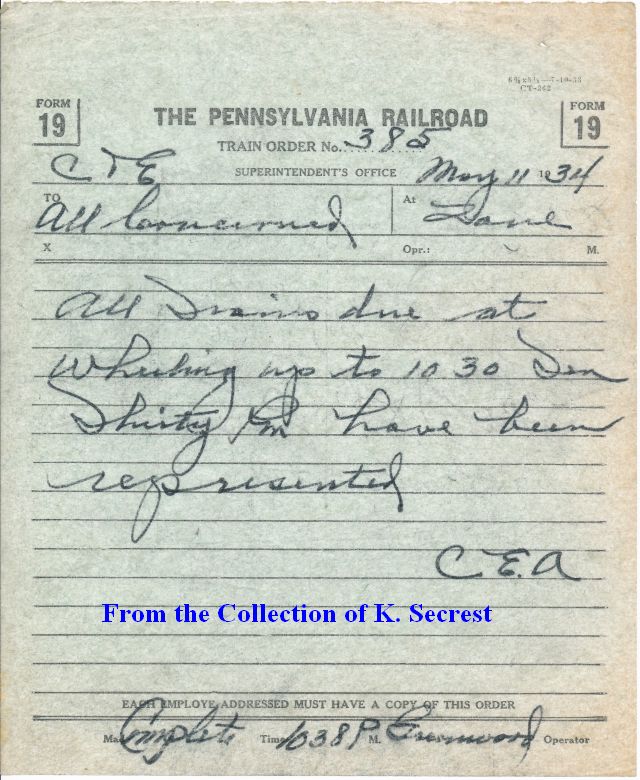 6¾x8½—7-10-33
CT-262
FORM 19
THE PENNSYLVANIA RAILROAD
FORM 19
TRAIN ORDER No. 385
CTE
SUPERINTENDENT'S OFFICE May 11 1934
TO All Concerned At
X Opr.: M.
All Trains due at
Wheeling up to 10 30 Ten
Thirty PM have been
represented
C.E.A
From the Collection of K. Secrest
EACH EMPLOYE ADDRESSED MUST HAVE A COPY OF THIS ORDER
Made Complete Time 1038 P M. Operator